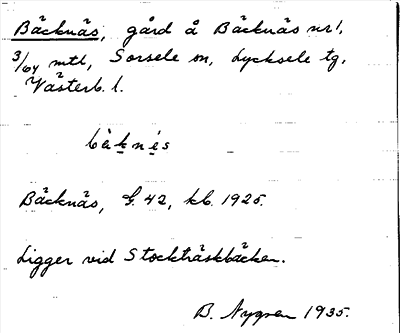 Bäcknäs, gård å Bäcknäs nr 1,
3/64 mtl, Sorsele sn, Lycksele tg.
Västerb. l.
bäknés
Bäcknäs, G. 42, kb. 1925.
Ligger vid Stockträskbäcken.
B. Nygren 1935.